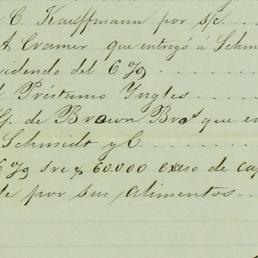 C. Kauffmann por s/c
A Cramer que entregó á Schm
videndo del 6 %
l Préstamo Ingles
Gj. de Brown Bros que en
Schmidt y C.
6 % sre $ 60.000 exeso de cap
te por sus alimentos